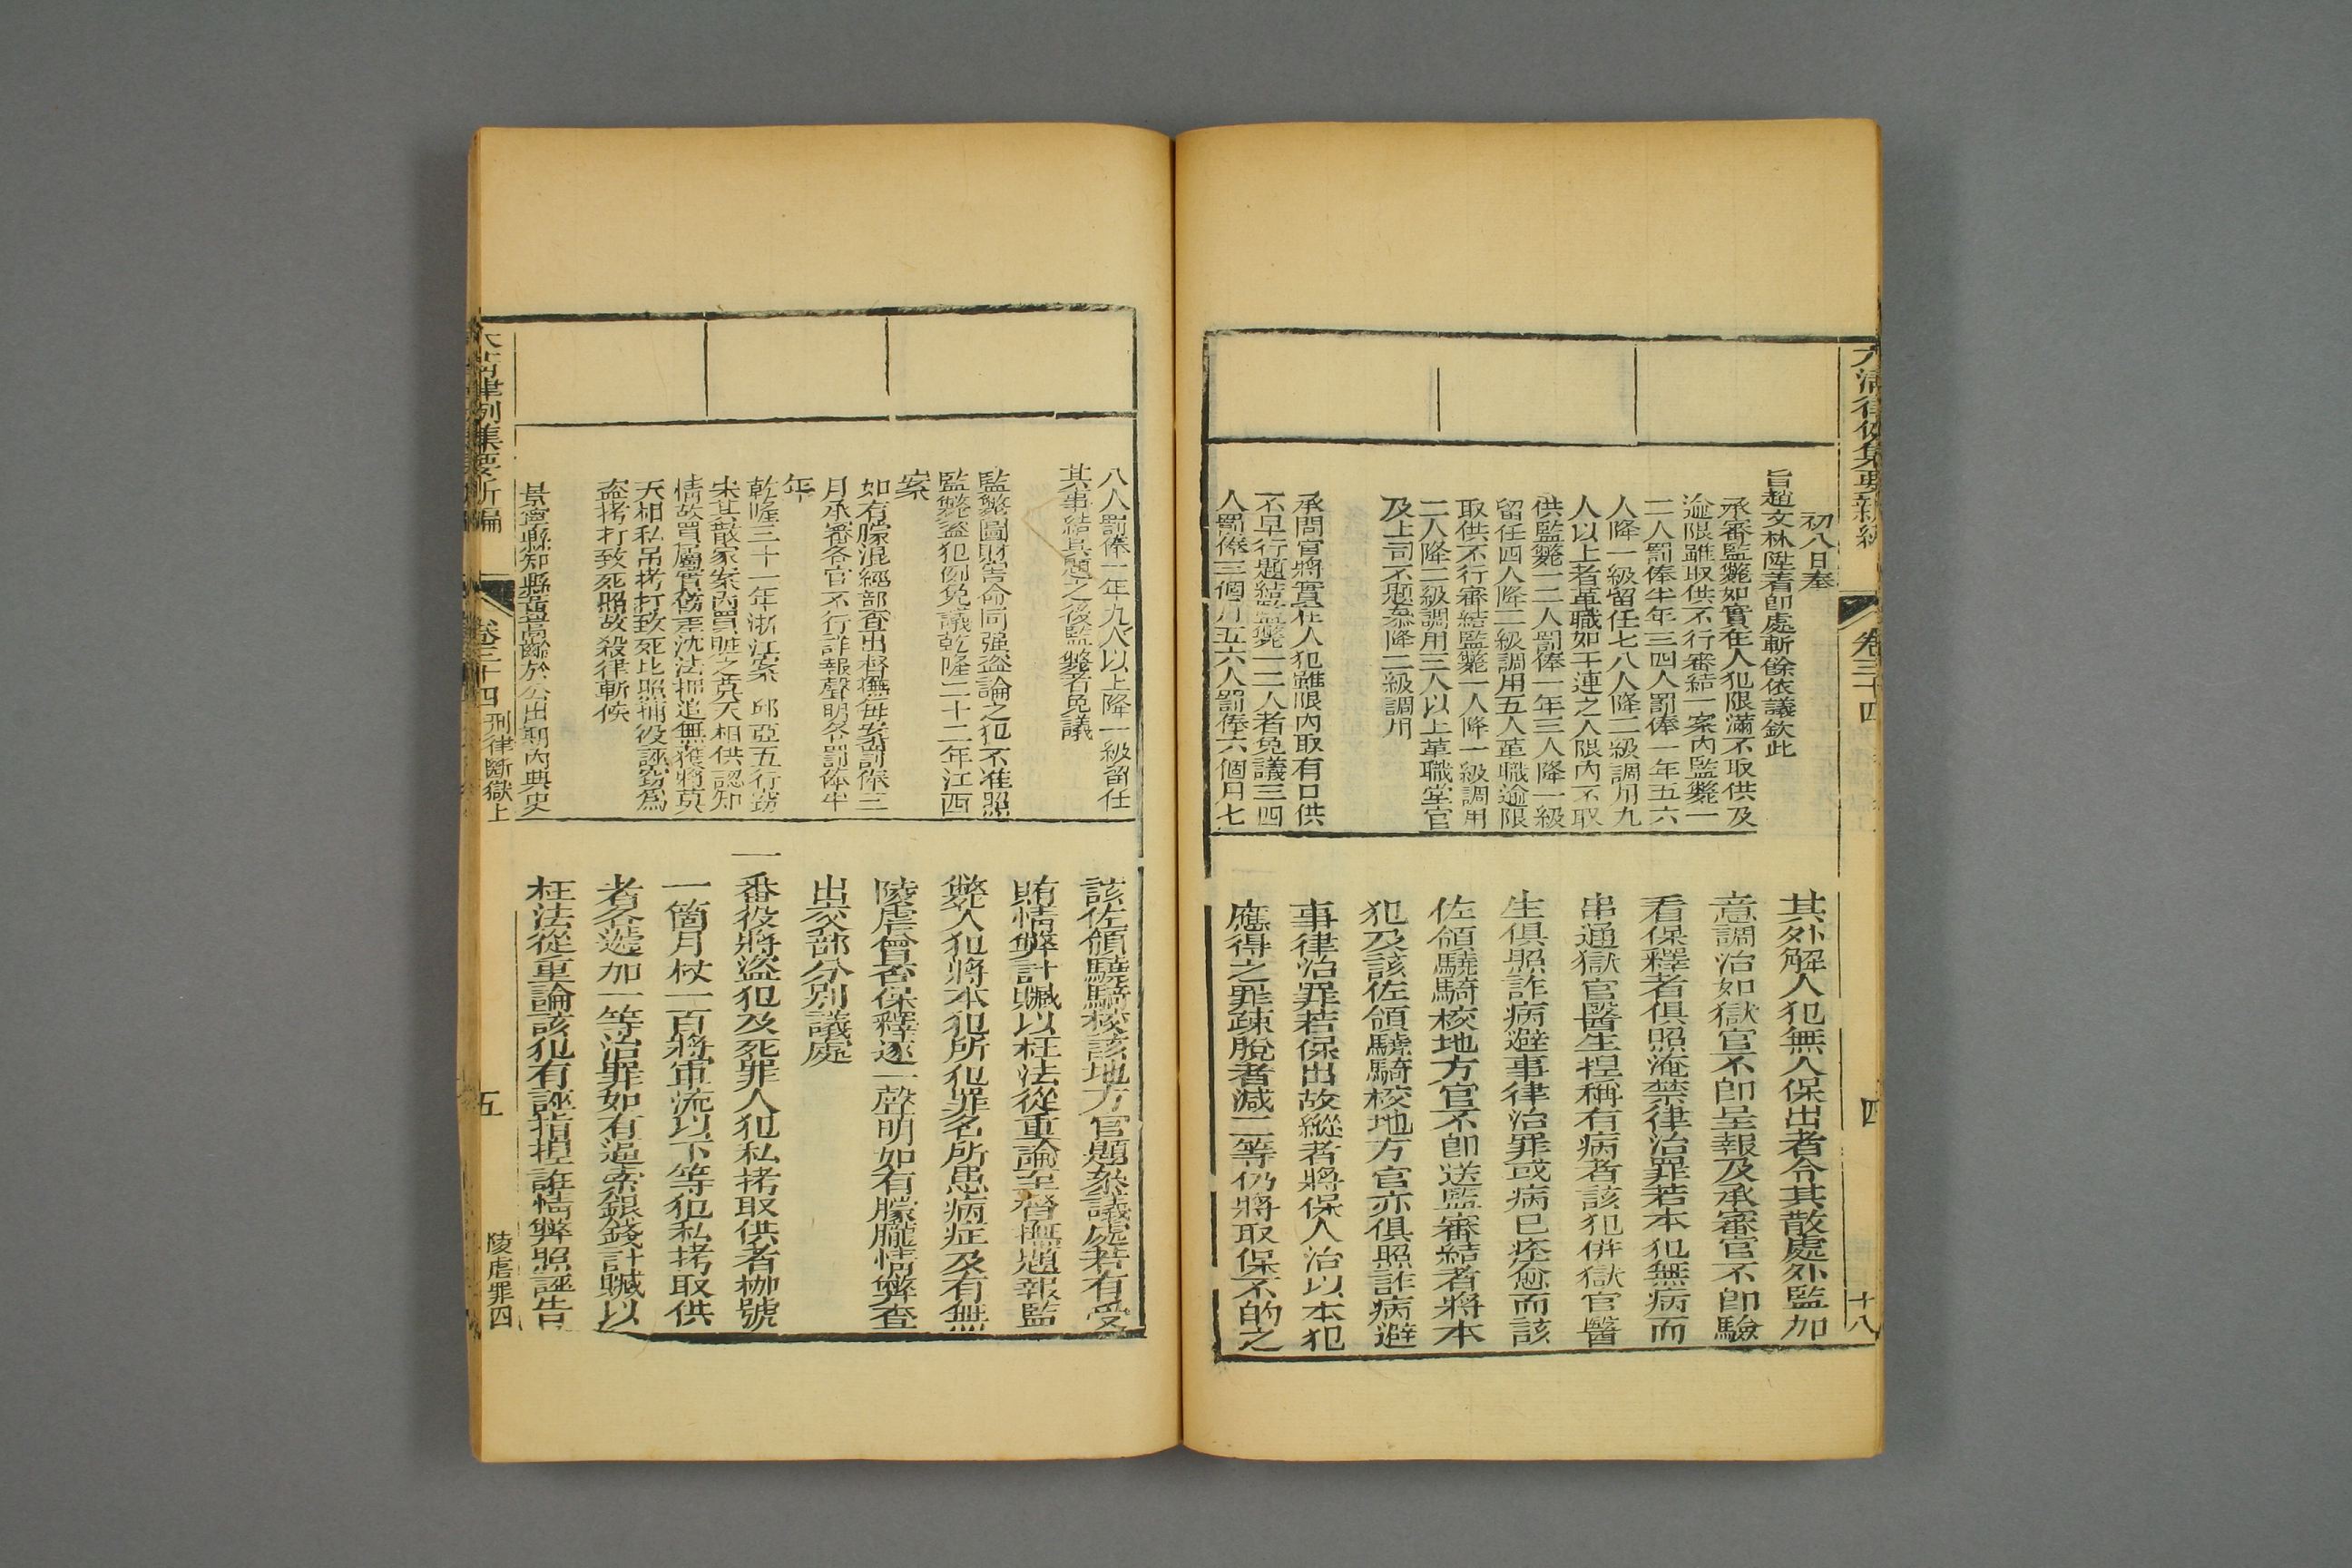 大清律例集要新編
卷三十四
四
十八
初八日奉
旨趙文林陞着卽處斬餘依議欽此
承審監斃如實在人犯限滿不取供及
逾限雖取供不行審結一案內監斃一
二人罰俸半年三四人罰俸一年五六
人降一級留任七八人降二級調用九
人以上者革職如干連之人限內不取
供監斃一二人罰俸一年三人降一級
留任四人降二級調用五人革職逾限
取供不行審結監斃一人降一級調用
二人降二級調用三人以上革職堂官
及上司不題叅降二級調用
承問官將實在人犯雖限內取有口供
不早行題結監斃一二人者免議三四
人罰俸三個月五六人罰俸六個月七
其外解人犯無人保出者令其散處外監加
意調治如獄官不卽呈報及承審官不卽驗
看保釋者俱照淹禁律治罪若本犯無病而
串通獄官醫生揑稱有病者該犯併獄官醫
生俱照詐病避事律治罪或病已痊愈而該
佐領驍騎校地方官不卽送監審結者將本
犯及該佐領驍騎校地方官亦俱照詐病避
事律治罪若保出故縱者將保人治以本犯
應得之罪疎脫者減二等仍將取保不的之
八人罰俸一年九人以上降一級留任
其事結具題之後監斃者免議
監斃圖財害命同强盜論之犯不准照
監斃盜犯例免議乾隆二十二年江西
案
如有朦混經部查出督撫每案罰俸三
月承審各官不行詳報聲明各罰俸半
年
乾隆三十一年浙江案 邱亞五行竊
宋其散家案內買賍之莫天相供認知
情故買屬實傍差沈法押追無獲將莫
天相私吊拷打致死比照捕役誣竊爲
盜拷打致死照故殺律斬候
景寧縣知縣黃嵩齡於公出期內典史
該佐領驍騎校該地方官題叅議處若有受
賄情弊計贓以枉法從重論至督撫題報監
斃人犯將本犯所犯罪名所患病症及有無
陵虐曾否保釋逐一聲明如有朦朧情弊查
出交部分別議處
一番役將盜犯及死罪人犯私拷取供者枷號
一箇月杖一百將軍流以下等犯私拷取供
者各遞加一等治罪如有逼索銀錢計贓以
枉法從重論該犯有誣指揑誑情弊照誣告
大清律例集要新編
卷三十四
刑律斷獄上
五
陵虐罪囚